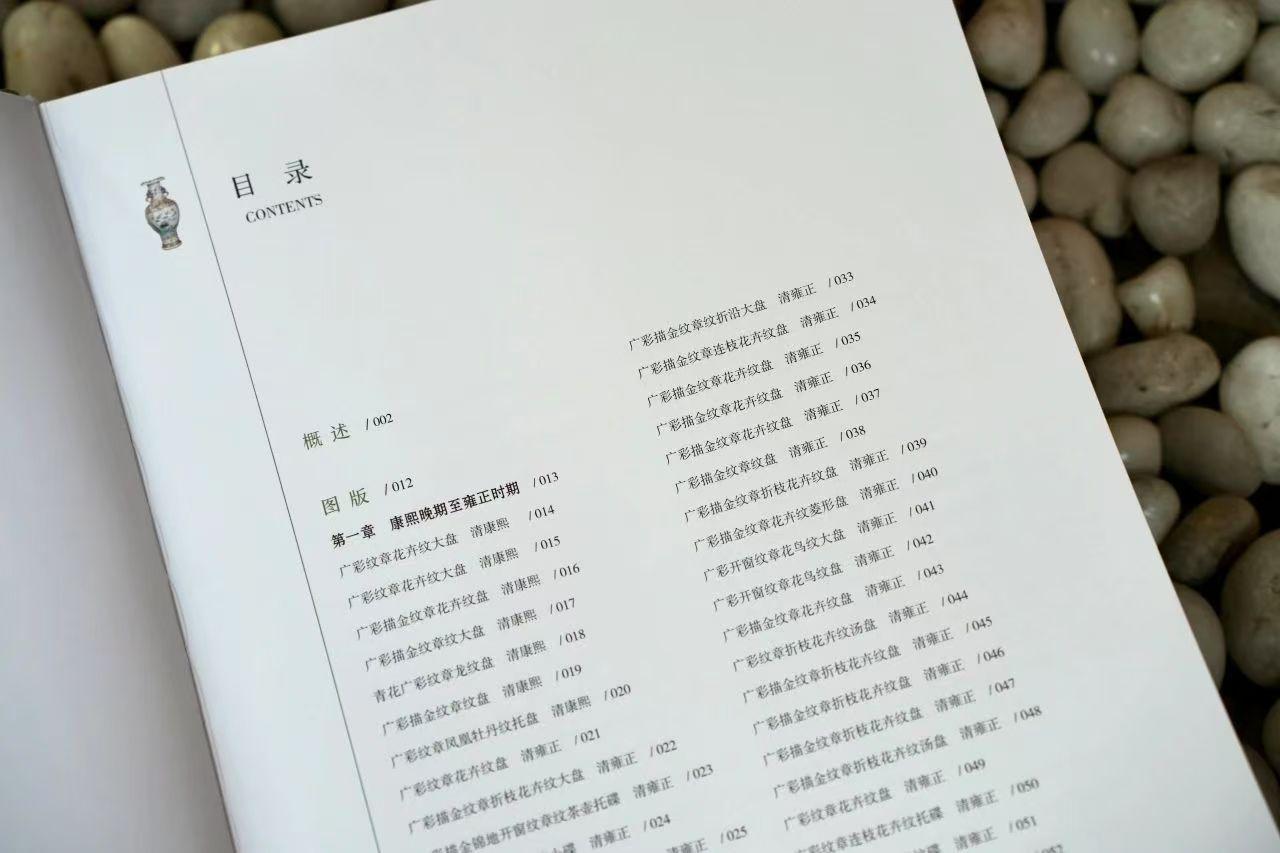 目 录
CONTENTS
概 述 /002
图 版 /012
第一章 康熙晚期至雍正时期 /013
广彩纹章花卉纹大盘 清康熙 /014
广彩纹章花卉纹大盘 清康熙 /015
广彩描金纹章花卉纹盘 清康熙 /016
广彩描金纹章纹大盘 清康熙 /017
青花广彩纹章龙纹盘 清康熙 /018
广彩描金纹章纹盘 清康熙 /019
广彩纹章凤凰牡丹纹托盘 清康熙 /020
广彩纹章花卉纹盘 清雍正 /021
广彩描金纹章折枝花卉纹大盘 清雍正 /022
彩描金锦地开窗纹章纹茶壶托碟 清雍正 /023
碟 清雍正 /024
清雍正 /025
广彩描金纹章纹折沿大盘 清雍正 /033
广彩描金纹章连枝花卉纹盘 清雍正 /034
广彩描金纹章花卉纹盘 清雍正 /035
广彩描金纹章花卉纹盘 清雍正 /036
广彩描金纹章花卉纹盘 清雍正 /037
广彩描金纹章纹盘 清雍正 /038
广彩描金纹章折枝花卉纹盘 清雍正 /039
广彩描金纹章花卉纹菱形盘 清雍正 /040
广彩开窗纹章花鸟纹大盘 清雍正 /041
广彩开窗纹章花鸟纹盘 清雍正 /042
广彩描金纹章花卉纹盘 清雍正 /043
广彩纹章折枝花卉纹汤盘 清雍正 /044
广彩描金纹章折枝花卉纹盘 清雍正 /045
广彩描金纹章折枝花卉纹盘 清雍正 /046
广彩描金纹章折枝花卉纹盘 清雍正 /047
广彩描金纹章折枝花卉纹汤盘 清雍正 /048
广彩纹章花卉纹盘 清雍正 /049
广彩纹章连枝花卉纹托碟 清雍正 /050
清雍正 /051